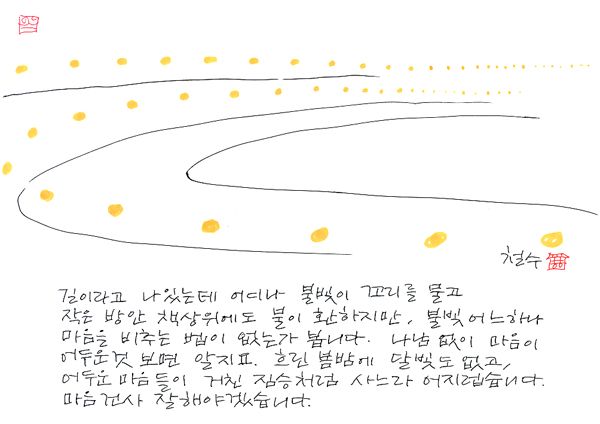 철수
길이라고 나있는데 어디나 불빛이 꼬리를 물고
작은 방안 책상위에도 불이 환하지만, 불빛 어느하나
마음을 비추는 법이 없는가 봅니다. 나남 없이 마음이
어두운것 보면 알지요. 흐린 봄밤에 달빛도 없고,
어두운 마음들이 거친 짐승처럼 사느라 어지럽습니다.
마음건사 잘해야겠습니다.